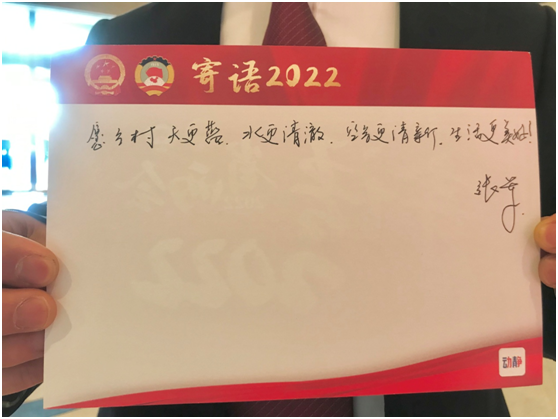 寄语2022
愿乡村天更蓝,水更清澈,空气更清新,生活更美好!
张
动静